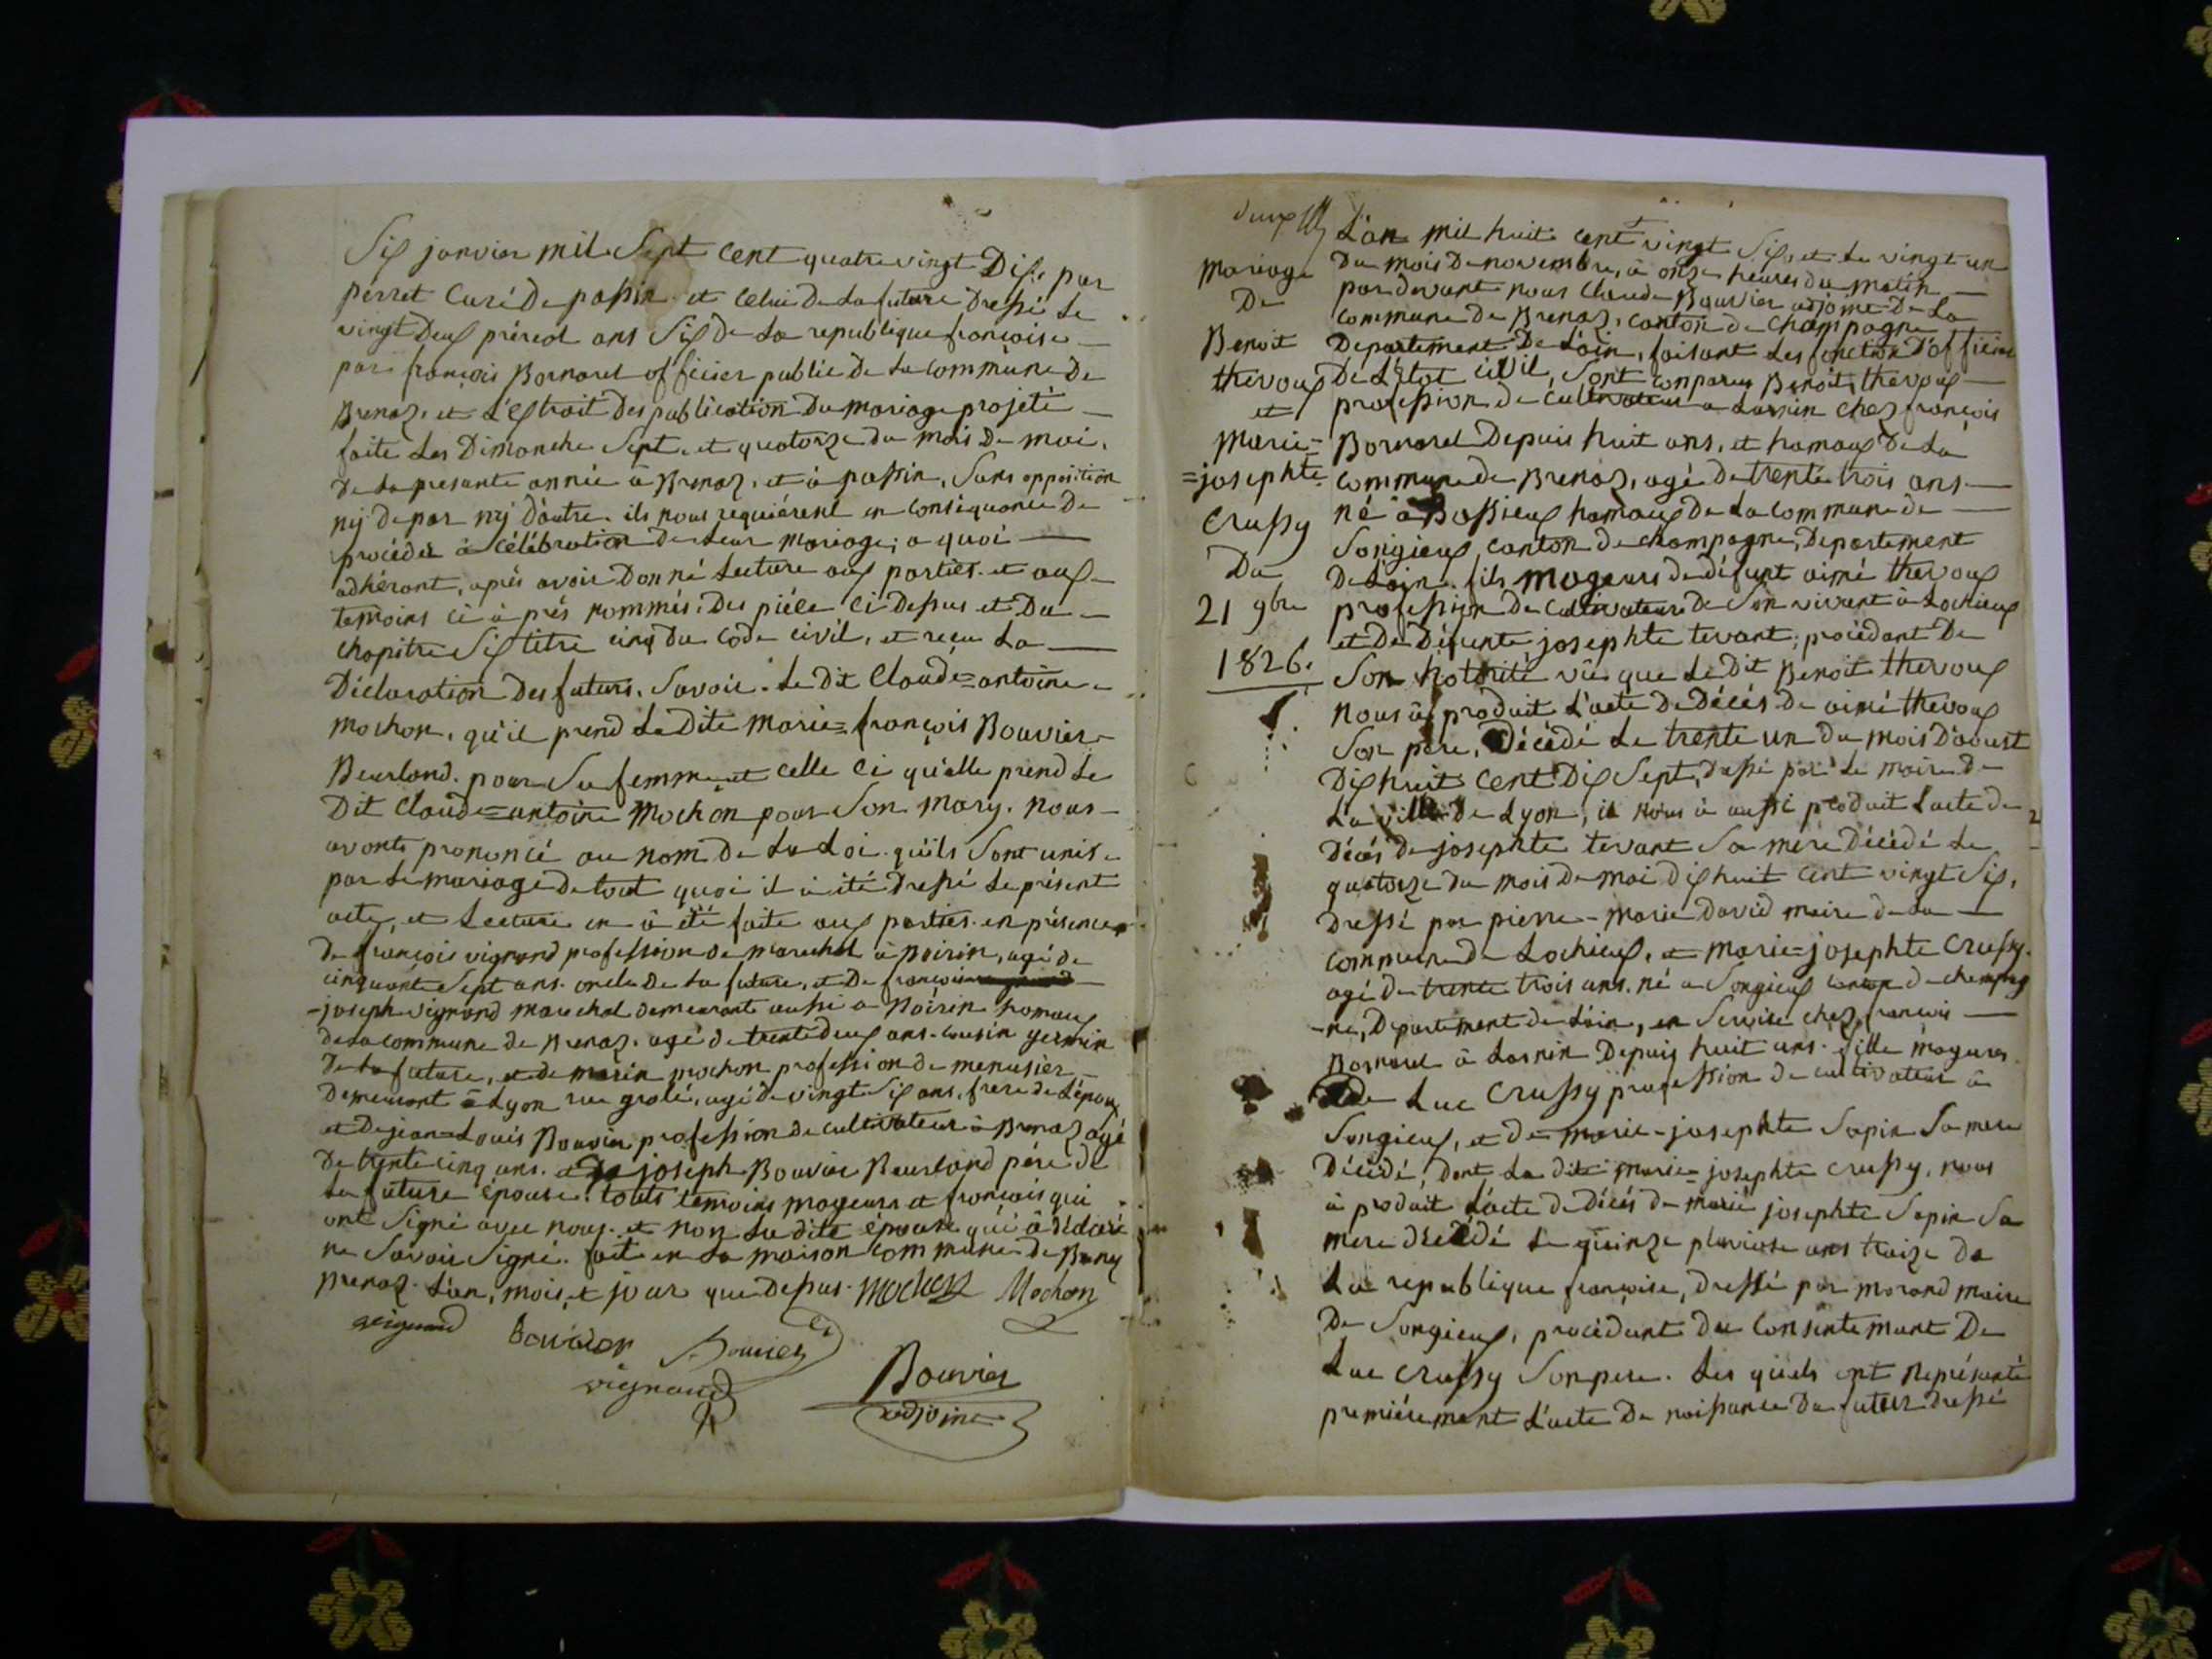 Six janvier mil Sept cent quatre vingt Dix, par
perret Curé De passin et celui De la future Dressé le
vingt Deux préreal ans Six de la republique françoise
par françois Bornarel officier public De la commune De
Brenaz, et L'Extrait Des publication Du mariage projeté
faite Les Dimanche Sept, et quatorze du mois De mai,
De La presante année à Brenaz, et à passin, Sans opposition
nÿ De par nÿ D'autre. ils nous requiérent en conséquance De
procéder à célébration de leur mariage; a quoi
adhérant, après avoir Donné Lecture aux parties et aux
temoins ci à prés nommés, Des piéce ci Dessus et Du
chapitre Six titre cinq du code civil, et reçu La
Déclaration Des futurs. Savoir. le Dit Claude=antoine
mochon, qu'il prend La Dite marie=françois Bouvier
Beurland. pour Sa femme et celle ci qu'elle prend Le
Dit Claude=antoine Mochon pour Son mary. nous
avonts prononcé au nom De La Loi qu'ils Sont unis
par Le mariage De tout quoi il à été Dressé Le présent
acte, et Lecture en à été faite aux parties en présence
De françois vignand profession De marechal à poirin, agé de
cinquante Sept ans. oncle De La future, et De françois
-joseph vignand marechal demeurants aussi a Noirin hamaux
de la commune de Brenaz. agé de trente deux ans. cousin germain
De La future, et de marin mochon profession De menusier
Demeurant à Lyon rue grolé, agé de vingt Six ans, frere de L'époux
et De jean=Louis Bouvier profession de cultivateur à Brenaz agé
De trente cinq ans. et De joseph Bouvier Beurland pére de
La future épouse. touts temoins mageurs et francois qui
ont Signé avec nous. et non La dite épouse qui à déclaré
ne Savoir Signé. fait en La maison commune de
Brenaz. L'an, mois, et jour que Dessus. mochon Mochon
vignand Bouvier Bouvier
vignand
Bouvier
adjoint
L'an mil huit cent vingt Six, et Le vingt un
Du mois De novembre, à onze heures du matin
par devant nous Claude Bouvier adjoint De La
commune De Brenaz, canton de Champagne
Departement De L'ain, faisant Les fonction D'officier
De L'état civil, Sont comparus Benoit thevoux
profession de cultivateur a Larnin chez françois
Bornarel Depuis huit ans, et hamaux De La
commune de Brenaz, agé de trente trois ans
né à Bassieux hamaux De La commune de
Songieux, canton de champagne, Departement
De L'ain. fils mageurs De défunt aimé thevoux
profession De cultivateur De Son vivant à Lochieux
et De Défunte josephte tevant; procédant De
Son hotorité vû que Le Dit Benoit thevoux
nous à produit L'acte De Décés De aimé thevoux
Son pere, Décédé Le trente un du mois D'aoust
Dix huit cent Dix Sept, dressé par Le maire De
La ville De Lyon, il nous à aussi produit L'acte De
Décés De josephte tevant Sa mére Décédé Le
quatorze du mois De mai Dix huit cent vingt Six,
Dressé par pierre-marie David maire de La
commune de Lochieux, et marie=josephte Crussy.
agé de trente trois ans. né a Songieux canton de champag
-ne, Departement de L'ain, en Service chez francois
Bornarel à Larnin Depuis huit ans. fille mageures
De Luc Crussy profession de cultivateur à
Songieux, et de marie-josephte Sapin Sa mere
Décédé, Dont La dite marie=josephte crussy, nous
à produit L'acte de Décés De marie josephte Sapin Sa
mere décédé Le quinze pluviose ans traize De
La republique francoise, dressé par morand maire
De Songieux, procédant du consentemant De
Luc crussy Son pere. Les quels ont Représanté
premiérement L'acte De naissance Du futur dressé
mariage
De
Benoit
thevoux
et
marie=
=josephte
Crussy
Du
21 9bre
1826.